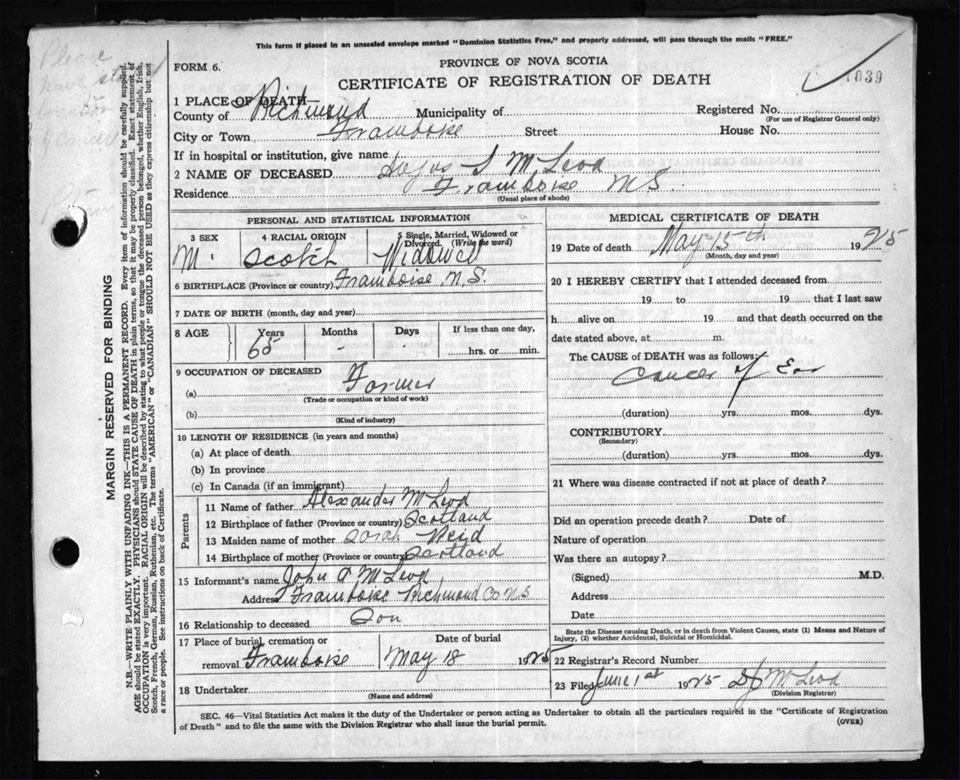 This form if placed in an unsealed envelope marked "Dominion Statistics Free," and properly addressed, will pass through the mails "FREE."
FORM 6.
PROVINCE OF NOVA SCOTIA
CERTIFICATE OF REGISTRATION OF DEATH
1039
1 PLACE OF DEATH
County of Richmond Municipality of Registered No.
(For use of Registrar General only)
City or Town Framboise Street House No.
If in hospital or institution, give name
2 NAME OF DECEASED McLeod
Residence Framboise N S
(Usual place of abode)
PERSONAL AND STATISTICAL INFORMATION
3 SEX 4 RACIAL ORIGIN 5 Single, Married, Widowed or Divorced. (Write the word)
M. Scotch Widowed
6 BIRTHPLACE (Province or country) Framboise, N.S.
7 DATE OF BIRTH (month, day and year)
8 AGE Years Months Days If less than one day,
65 - - hrs. or min.
9 OCCUPATION OF DECEASED
(a) Farmer
(Trade or occupation or kind of work)
(b)
(Kind of industry)
10 LENGTH OF RESIDENCE (in years and months)
(a) At place of death
(b) In province
(c) In Canada (if an immigrant)
Parents
11 Name of father Alexander McLeod
12 Birthplace of father (Province or country) Scotland
13 Maiden name of mother Sarah Reid
14 Birthplace of mother (Province or country) Scotland
15 Informant's name John A McLeod
Address Framboise Richmond Co N S
16 Relationship to deceased Son
17 Place of burial, cremation or removal Framboise Date of burial May 18 1925
18 Undertaker
(Name and address)
MEDICAL CERTIFICATE OF DEATH
19 Date of death May 15th 1925
(Month, day and year)
20 I HEREBY CERTIFY that I attended deceased from
19 to 19 that I last saw
h alive on 19 and that death occurred on the
date stated above, at m.
The CAUSE of DEATH was as follows:
Cancer of Ear
(duration) yrs. mos. dys.
CONTRIBUTORY
(Secondary)
(duration) yrs. mos. dys.
21 Where was disease contracted if not at place of death?
Did an operation precede death? Date of
Nature of operation
Was there an autopsy?
(Signed) M.D.
Address
Date
State the Disease causing Death, or in death from Violent Causes, state (1) Means and Nature of
Injury, (2) whether Accidental, Suicidal or Homicidal.
22 Registrar's Record Number
23 Filed June 1st 1925 McLeod
(Division Registrar)
SEC. 46—Vital Statistics Act makes it the duty of the Undertaker or person acting as Undertaker to obtain all the particulars required in the "Certificate of Registration
of Death" and to file the same with the Division Registrar who shall issue the burial permit.
(OVER)
MARGIN RESERVED FOR BINDING
N.B.—WRITE PLAINLY WITH UNFADING INK—THIS IS A PERMANENT RECORD. Every item of information should be carefully supplied.
AGE should be stated EXACTLY. PHYSICIANS should STATE CAUSE OF DEATH in plain terms, so that it may be properly classified. Exact statement of
OCCUPATION is very important. RACIAL ORIGIN will be described by stating to what people or tongue the deceased person belonged, whether English, Irish,
Scotch, French, German, Russian, Ruthenian, etc. The terms "AMERICAN" or "CANADIAN" SHOULD NOT BE USED as they express citizenship but not
a race or people. See instructions on back of Certificate.
Please
have
location
of cancer